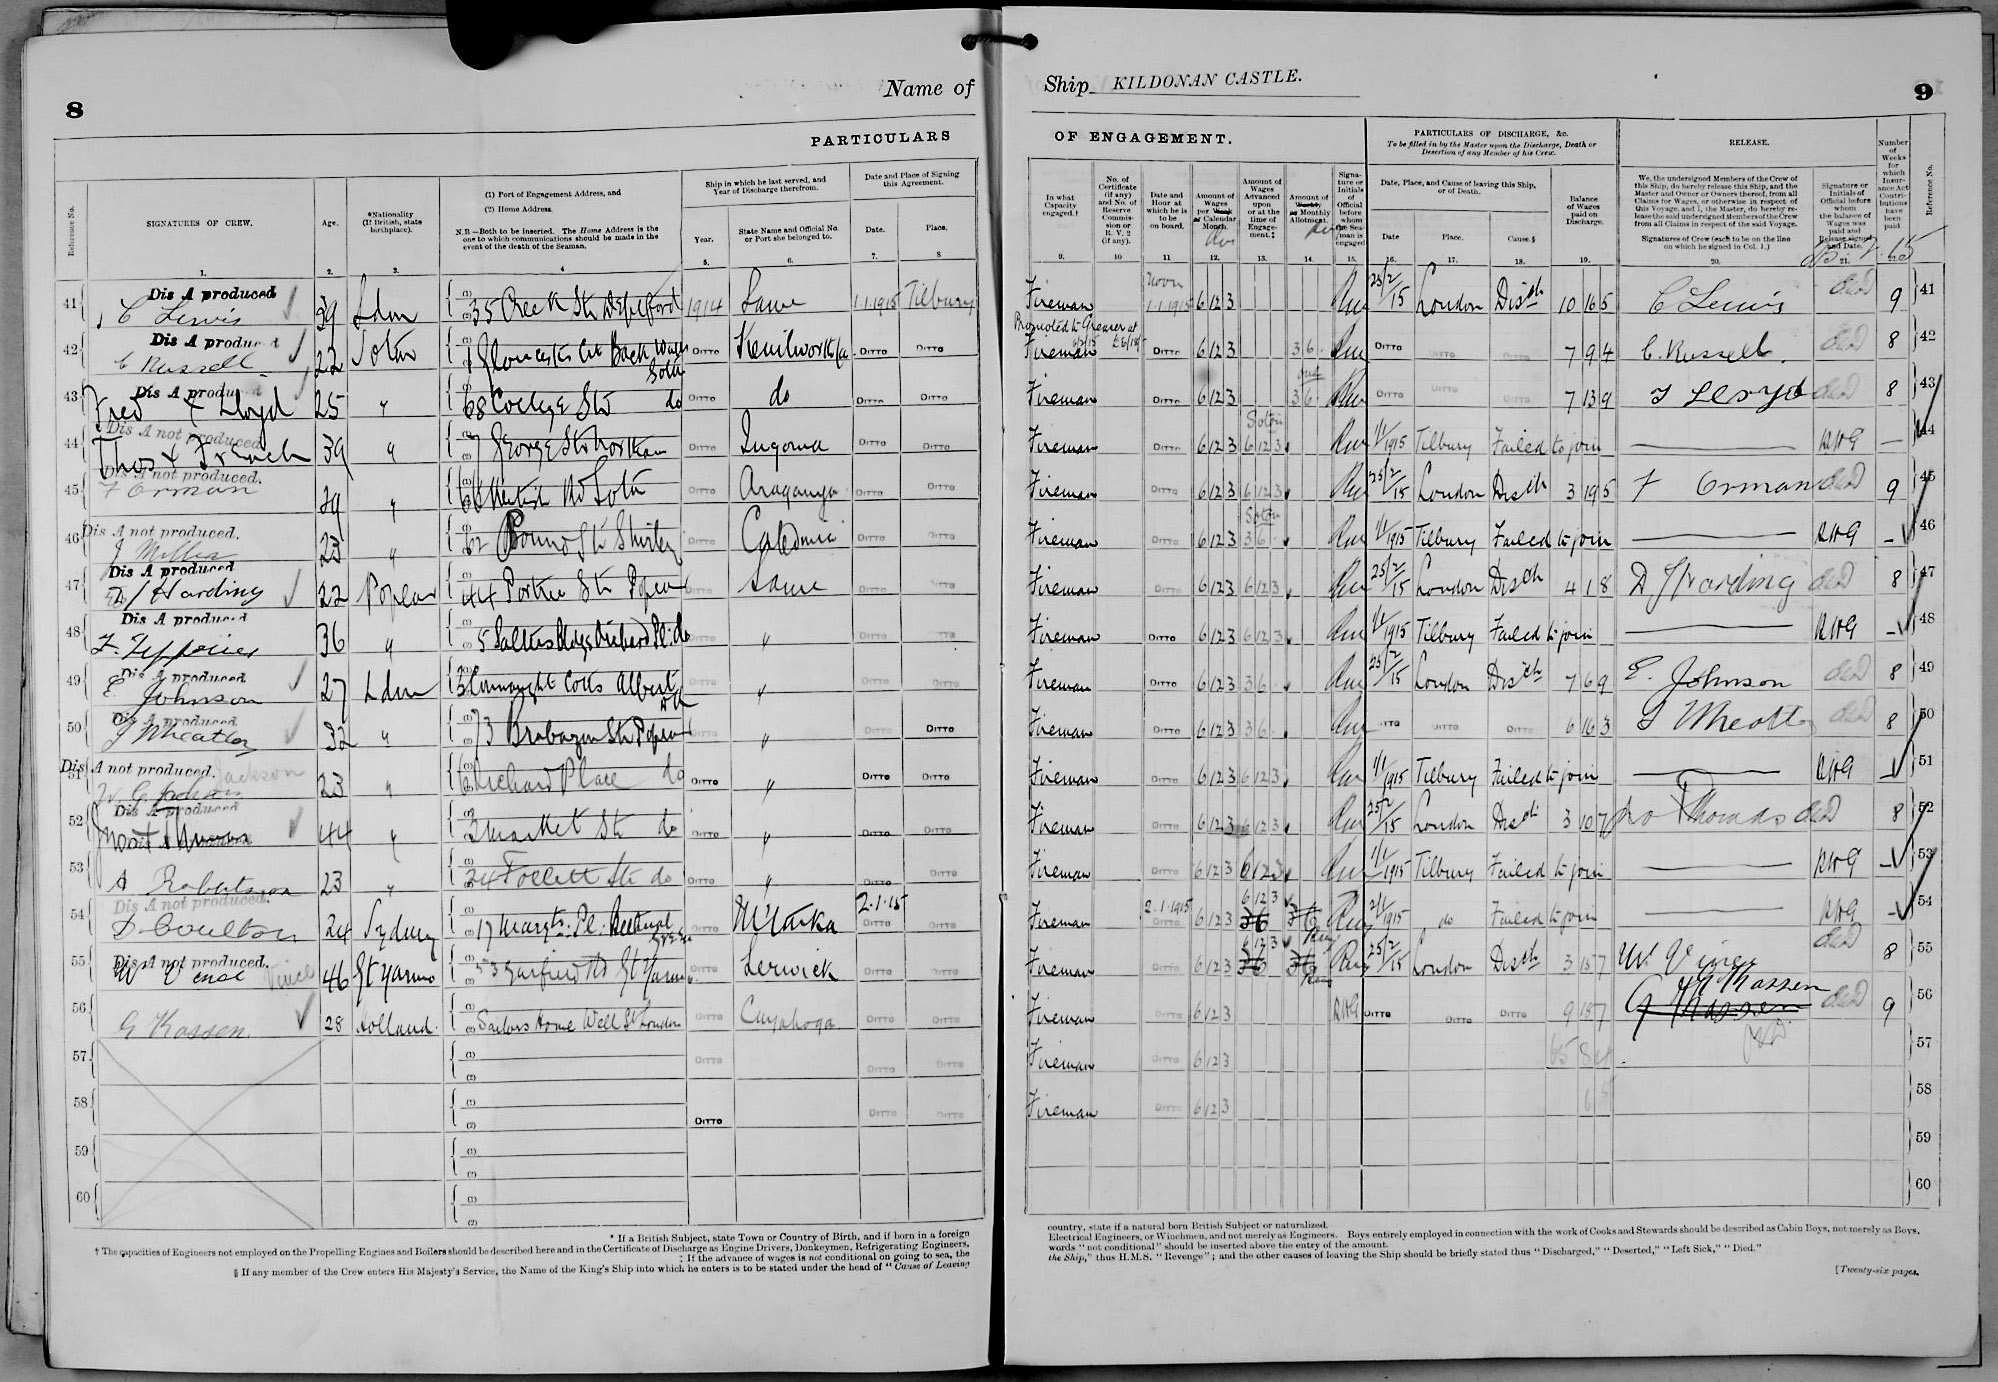 8
Name of
PARTICULARS
Reference No.
SIGNATURES OF CREW.
Age.
*Nationality (If British, state birthplace).
(1) Port of Engagement Address, and
(2) Home Address.
N.B.—Both to be inserted. The Home Address is the one to which communications should be made in the event of the death of the Seaman.
Ship in which he last served, and Year of Discharge therefrom.
Year.
State Name and Official No. or Port she belonged to.
Date and Place of Signing this Agreement.
Date.
Place.
1. 2. 3. 4 5. 6. 7. 8
41 Dis A produced C Lewis 39 Ldon 35 Creek St Deptford 1914 Same 1.1.1915 Tilbury
42 Dis A produced C Russell 22 Soton Gloucester Back Soton DITTO Kenilworth Ca DITTO DITTO
43 Dis A produced Fred X Lloyd 25 " 68 College St do DITTO do DITTO DITTO
44 Dis A not produced. Thos X French 39 " 7 George St Northam DITTO Ingoma DITTO DITTO
45 Dis A not produced. F Orman 39 " Rd Soton DITTO Araguaya DITTO DITTO
46 Dis A not produced. J Miller 23 " 62 Pound St Shirley DITTO Caledonia DITTO DITTO
47 Dis A produced D J Harding 22 Poplar 44 St Poplar DITTO Same DITTO DITTO
48 Dis A produced F. Jefferies 36 " 5 Salters Bldgs do DITTO " DITTO DITTO
49 Dis A produced E Johnson 27 Ldon Connaught Cotts Albert DITTO " DITTO DITTO
50 Dis A produced J Wheatley 32 " 73 Brabazon St Poplar DITTO " DITTO DITTO
51 Dis A not produced. Jackson 23 " Richard Place do DITTO " DITTO DITTO
52 Dis A produced Thomas 44 " 2 Market St do DITTO " DITTO DITTO
53 A Robertson 23 " 24 Follett St do DITTO " DITTO DITTO
54 Dis A not produced. D. Coulton 24 Sydney 17 DITTO 2.1.15 DITTO DITTO
55 Dis A not produced. W Vince 46 Gt Yarmo 53 Garfield Rd Gt Yarmo DITTO Lerwick DITTO DITTO
56 G Kassen. 28 Holland. Sailors Home Well St London DITTO Cuyahoga DITTO DITTO
57 DITTO DITTO DITTO
58 DITTO DITTO DITTO
59
60
* If a British Subject, state Town or Country of Birth, and if born in a foreign
† The capacities of Engineers not employed on the Propelling Engines and Boilers should be described here and in the Certificate of Discharge as Engine Drivers, Donkeymen, Refrigerating Engineers,
‡ If the advance of wages is not conditional on going to sea, the
§ If any member of the Crew enters His Majesty's Service, the Name of the King's Ship into which he enters is to be stated under the head of "Cause of Leaving
Ship KILDONAN CASTLE.
9
OF ENGAGEMENT.
PARTICULARS OF DISCHARGE, &c.
To be filled in by the Master upon the Discharge, Death or Desertion of any Member of his Crew.
RELEASE.
In what Capacity engaged.†
No. of Certificate (if any) and No. of Reserve Commission or R. V. 2 (if any).
Date and Hour at which he is to be on board.
Amount of Wages per Week or Calendar Month.
Amount of Wages Advanced upon or at the time of Engagement.‡
Amount of Weekly or Monthly Allotment.
Signature or Initials of Official before whom the Seaman is engaged
Date, Place, and Cause of leaving this Ship, or of Death.
Date
Place.
Cause.§
Balance of Wages paid on Discharge.
We, the undersigned Members of the Crew of this Ship, do hereby release this Ship, and the Master and Owner or Owners thereof, from all Claims for Wages, or otherwise in respect of this Voyage, and I, the Master, do hereby release the said undersigned Members of the Crew from all Claims in respect of the said Voyage.
Signatures of Crew (each to be on the line on which he signed in Col. 1.)
Signature or Initials of Official before whom the balance of Wages was paid and Release signed and Date.
Number of Weeks for which Insurance Act Contributions have been paid
Reference No.
9. 10 11. 12. 13. 14. 15. 16. 17. 18. 19. 20. 21.
Fireman Noon 1.1.1915 6 12 3 25/2/15 London Disch 10 16 5 C Lewis 9 41
Promoted to Greaser at
Fireman DITTO 6 12 3 3 6 DITTO DITTO DITTO 7 9 4 C. Russell. 8 42
Fireman DITTO 6 12 3 3 6 DITTO DITTO DITTO 7 13 9 F Lloyd 8 43
Soton
Fireman DITTO 6 12 3 6 12 3 1/1 1915 Tilbury Failed to join RHG — 44
Fireman DITTO 6 12 3 6 12 3 25/2/15 London Disch 3 19 5 F Orman 9 45
Soton
Fireman DITTO 6 12 3 3 6 1/1 1915 Tilbury Failed to join RHG — 46
Fireman DITTO 6 12 3 6 12 3 25/2/15 London Disch 4 1 8 D J Harding 8 47
Fireman DITTO 6 12 3 6 12 3 1/1 1915 Tilbury Failed to join RHG — 48
Fireman DITTO 6 12 3 3 6 25/2/15 London Disch 7 6 9 E. Johnson 8 49
Fireman DITTO 6 12 3 3 6 DITTO DITTO DITTO 6 16 3 J Wheatley 8 50
Fireman DITTO 6 12 3 6 12 3 1/1 1915 Tilbury Failed to join RHG — 51
Fireman DITTO 6 12 3 6 12 3 25/2/15 London Disch 3 10 7 Thomas 8 52
Fireman DITTO 6 12 3 6 12 3 1/1 1915 Tilbury Failed to join RHG — 53
Fireman 2.1.1915 DITTO 6 12 3 6 12 3 3 6 3 6 2/1 1915 do Failed to join RHG — 54
Fireman DITTO 6 12 3 6 12 3 3 6 3 6 25/2/15 London Disch 3 15 7 W. Vince 8 55
Fireman DITTO 6 12 3 RHG DITTO DITTO DITTO 9 15 7 G Kassen 9 56
Fireman DITTO 6 12 3 57
Fireman DITTO 6 12 3 58
59
60
country, state if a natural born British Subject or naturalized.
Electrical Engineers, or Winchmen, and not merely as Engineers. Boys entirely employed in connection with the work of Cooks and Stewards should be described as Cabin Boys, not merely as Boys.
words "not conditional" should be inserted above the entry of the amount.
the Ship," thus H.M.S. "Revenge"; and the other causes of leaving the Ship should be briefly stated thus "Discharged," "Deserted," "Left Sick," "Died."
[Twenty-six pages.